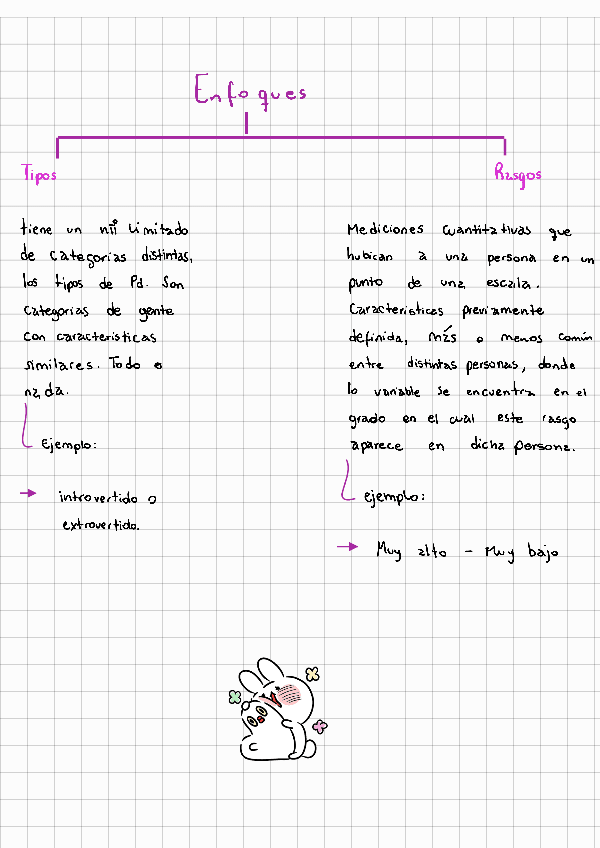 Enfoques
Tipos
tiene un nº limitado
de categorías distintas,
los tipos de Pd. Son
categorías de gente
con características
similares. Todo o
nada.
Ejemplo:
introvertido o
extrovertido.
Rasgos
Mediciones cuantitativas que
hubican a una persona en un
punto de una escala.
Características previamente
definida, más o menos común
entre distintas personas, donde
lo variable se encuentra en el
grado en el cual este rasgo
aparece en dicha persona.
ejemplo:
Muy alto - Muy bajo